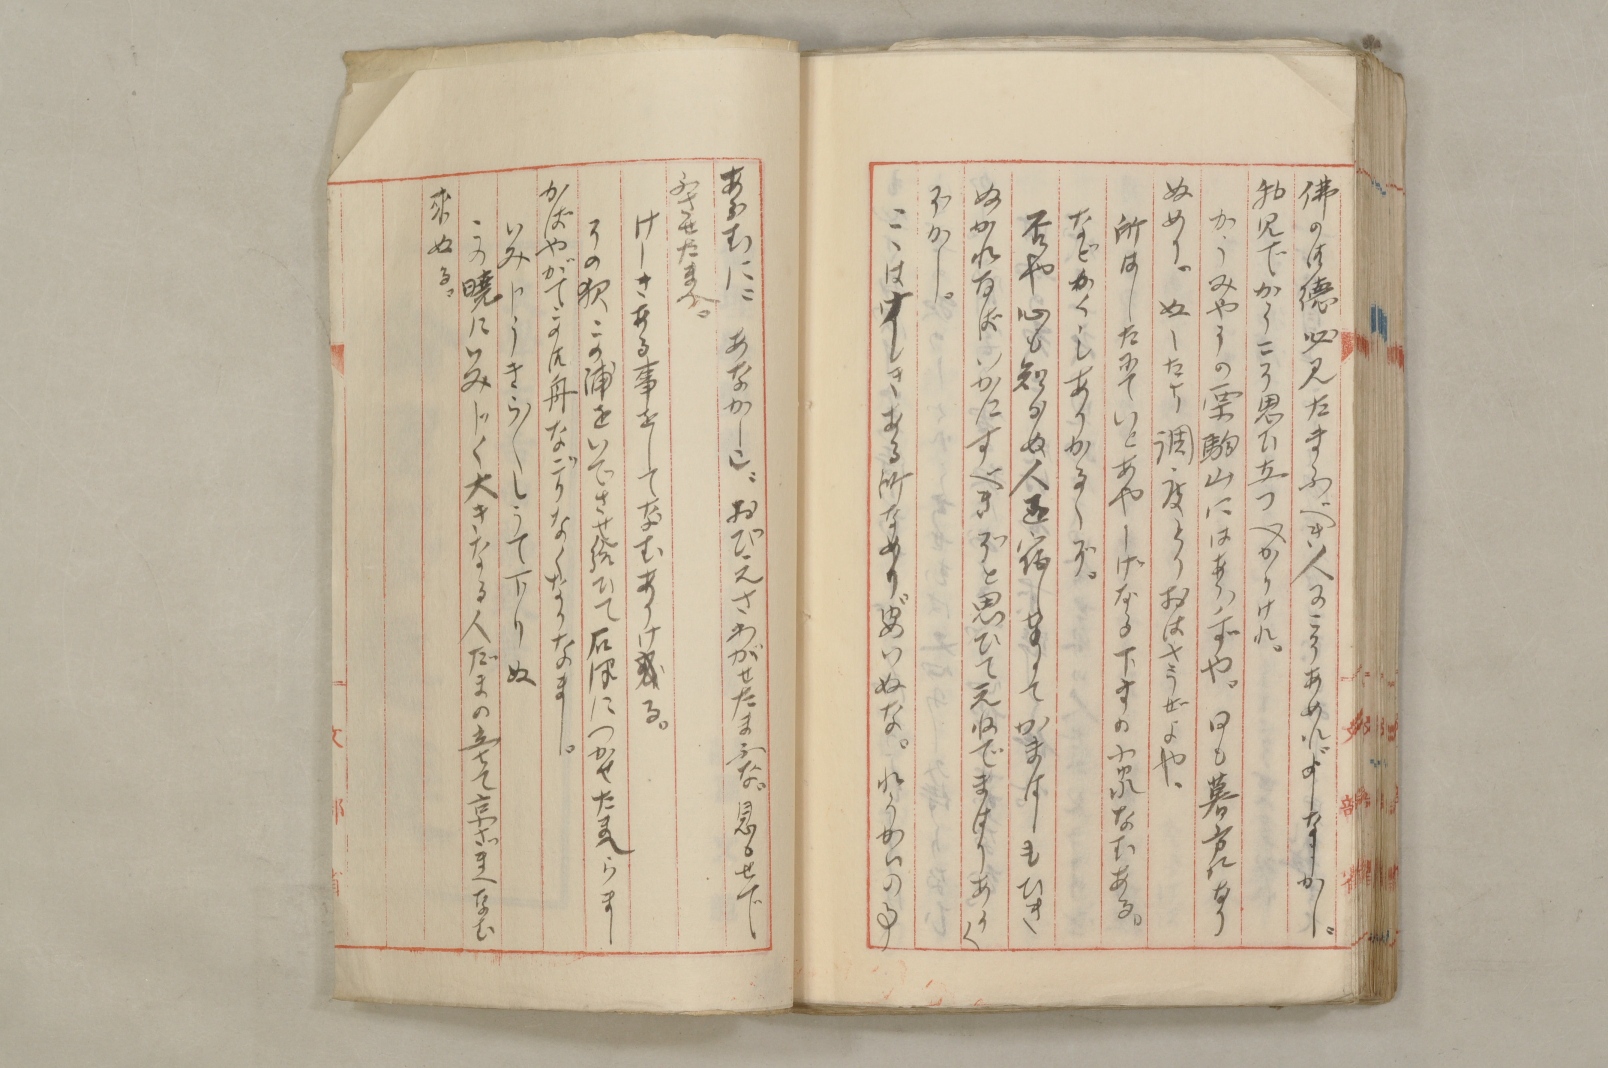 佛の御徳必見たまふべき人にこそあめれ。よしなかし。
物見でかうこそ思ひ立つべかりけれ。
かうみやうの栗駒山にはあらずや。日も暮方になり
ぬめり。ぬしたち調度とりおはさうぜよや。
所はしたにていとあやしげなる下すの小家なむある。
などかくしもありかるゝぞ。
否や心も知らぬ人を宿しまりてかまはしもひき
ぬかれなばいかにすべきぞと思ひて え寝でまはりありく
ぞかし。
こゝはけしきある所なめり。ゆめいぬな。れうがいの事
あらむに、あなかしこ、おびえさわがせたまふな。息もせで
ふさせたまへ。
けしきある事をしてなむありける。
その夜、この浦をいでさせ給ひて石津につかせたまへらまし
かばやがてこの御舟なごりなくなりなまし。
いみじうきら〳〵しうて下りぬ
この曉にいみじく大きなる人だまの立ちて京ざまへなむ
來ぬる。
文部省